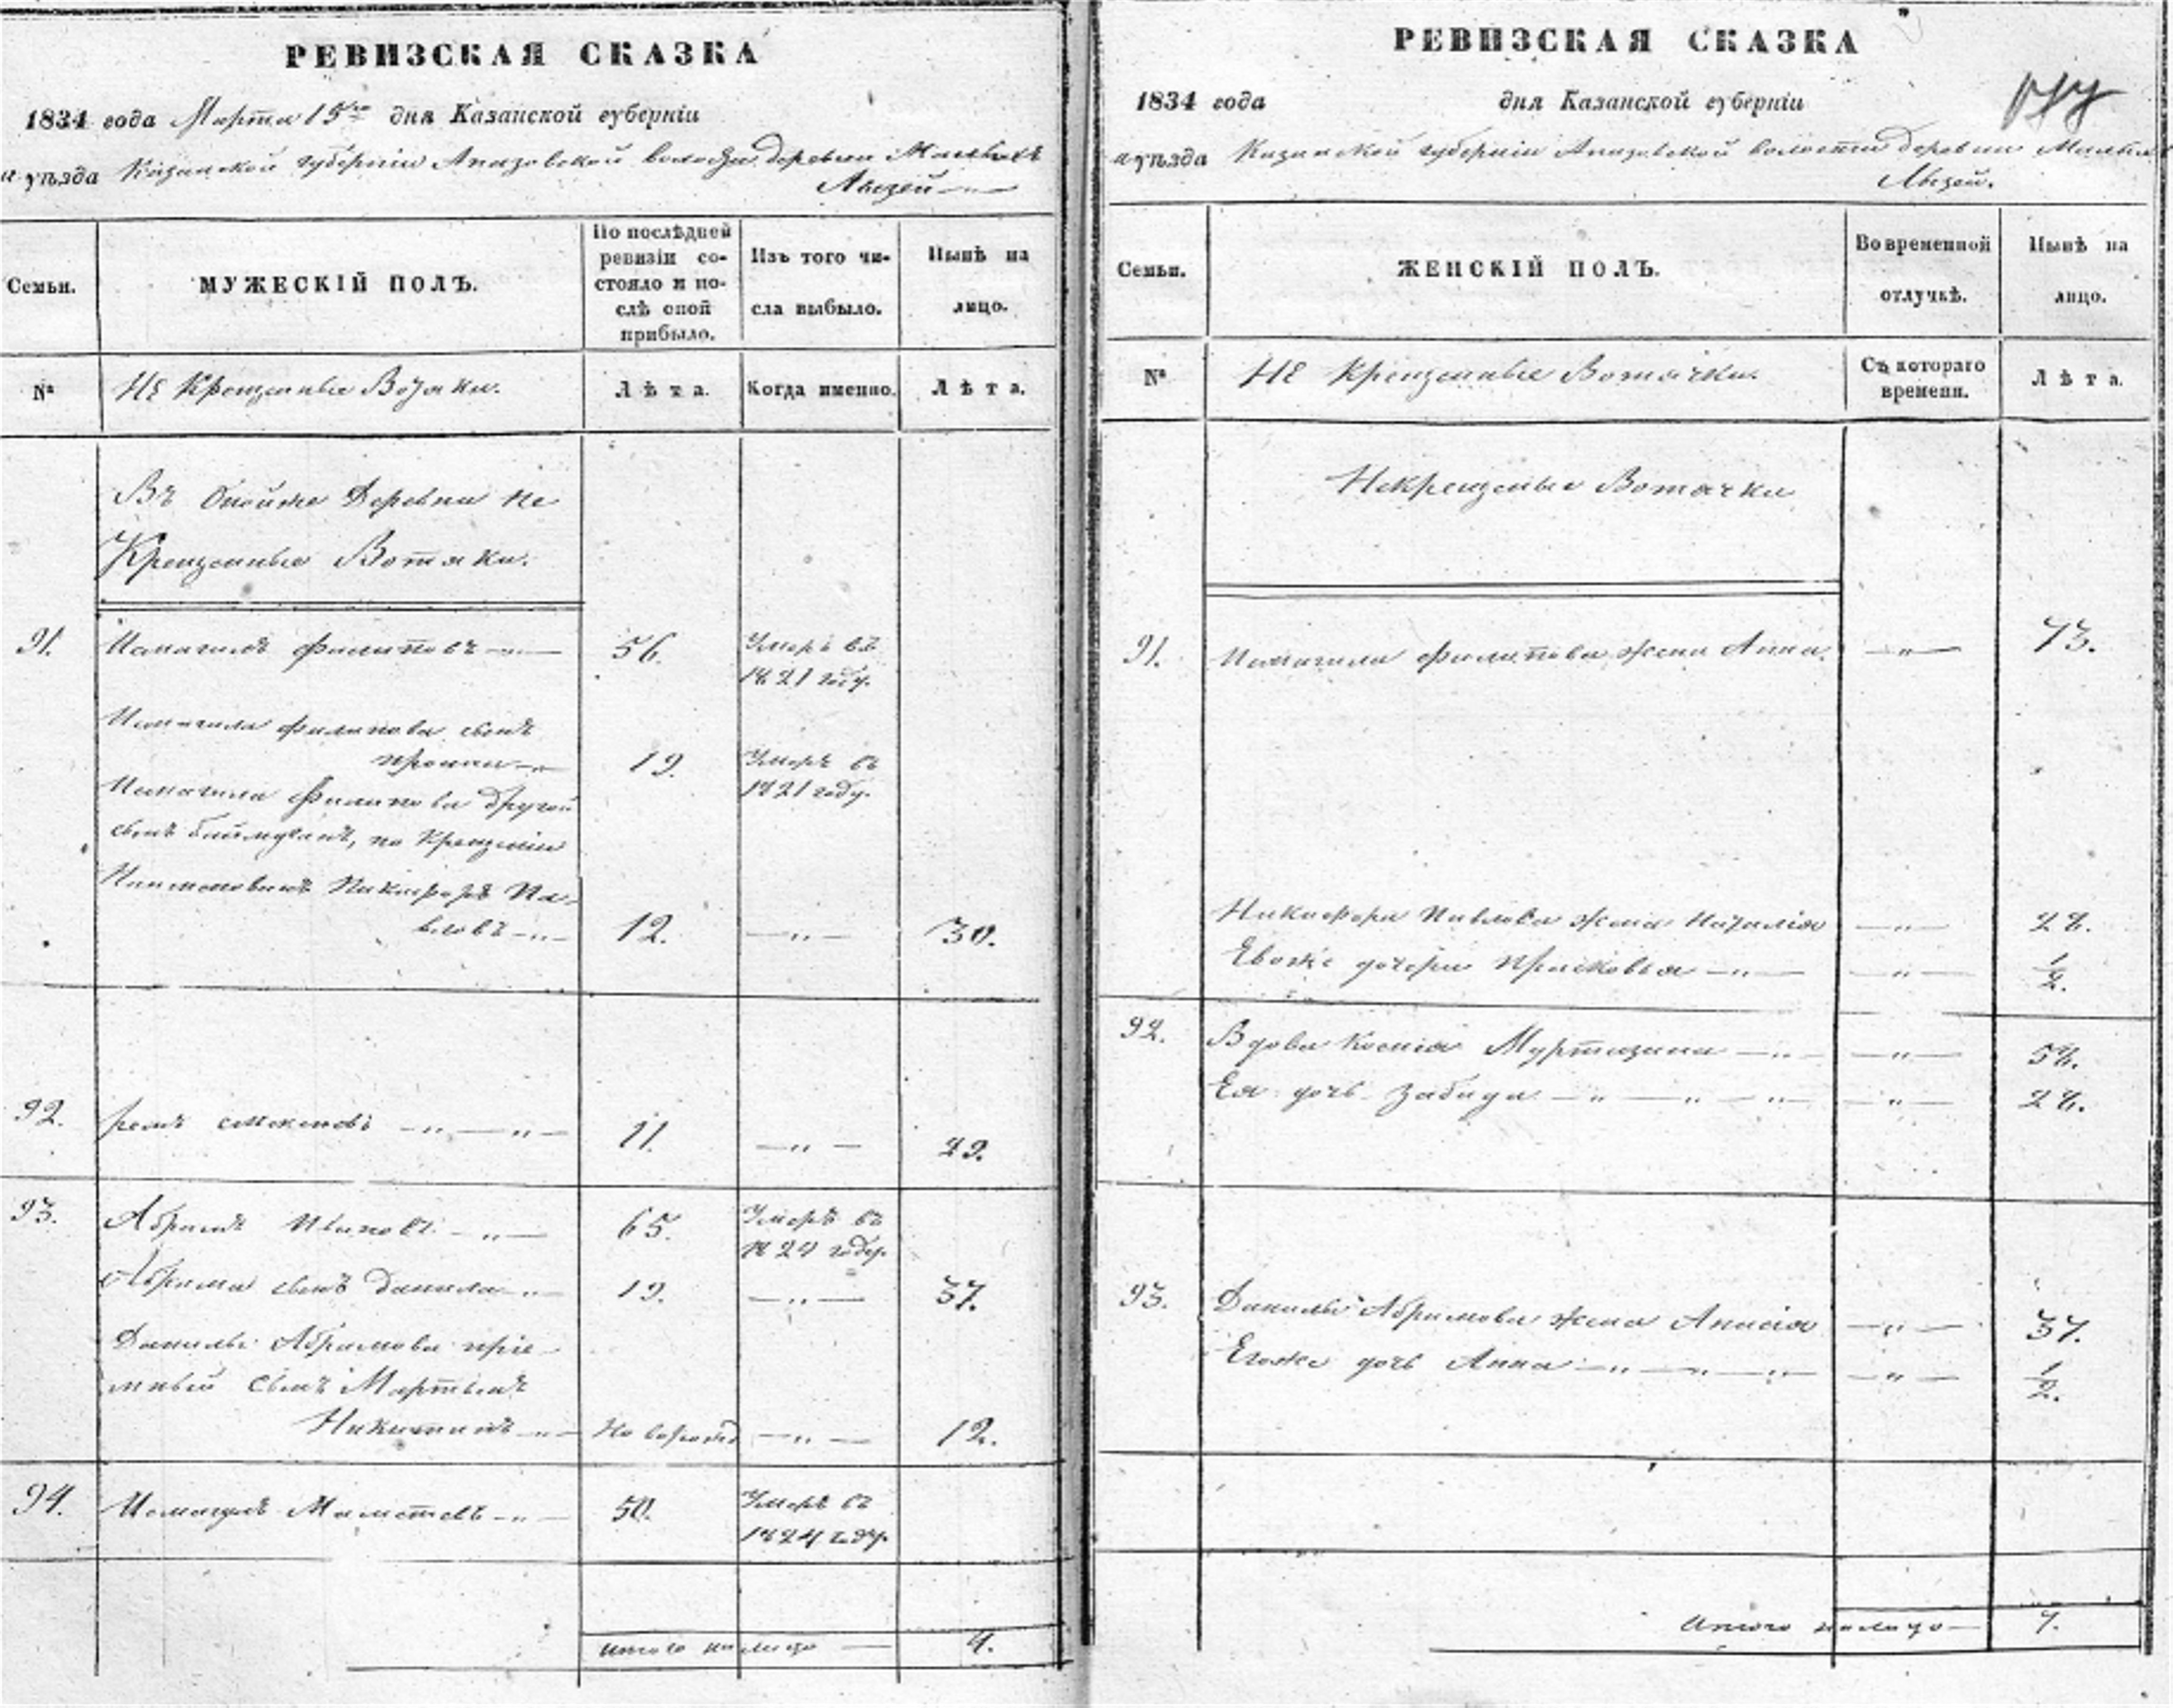 РЕВИЗСКАЯ СКАЗКА
1834 года Марта 15го дня Казанской губерніи
уѣзда Казанской губерніи волости деревни Малыхъ
Лызей
Семьи.
МУЖЕСКІЙ ПОЛЪ.
По послѣдней ревизіи со-
стояло и по-
слѣ оной
прибыло.
Изъ того чи-
сла выбыло.
Нынѣ на
лицо.
№
Не Крещенные Вотяки.
Лѣта.
Когда именно.
Лѣта.
Въ Оной же Деревни не
Крещенные Вотяки.
91. Исмагилъ Филиповъ 56. Умеръ въ
1821 году.
Исмагила Филипова сынъ
19. Умеръ въ
1821 году.
Исмагила Филипова другой
сынъ по Крещеніи
Никифоръ Па-
вловъ 12. —„— 30.
92. 11. —„— 29.
93. Абрамъ Ивановъ 65. Умеръ въ
году.
Абрама сынъ Данила 19. —„— 37.
Данилы Абрамова пріе-
мный сынъ Мартынъ
Никитинъ —„— 12.
94. 50. Умеръ въ
1824 году.
итого на лицо 4.
РЕВИЗСКАЯ СКАЗКА
1834 года дня Казанской губерніи
уѣзда Казанской губерніи волости деревни Малыхъ
Лызей.
Семьи.
ЖЕНСКІЙ ПОЛЪ.
Во временной
отлучкѣ.
Нынѣ на
лицо.
№
Не Крещенные Вотячки.
Съ котораго
времени.
Лѣта.
Некрещеные Вотячки
91. Исмагила Филипова жена Анна. —„— 73.
Никифора Павлова жена Наталія —„— 28.
Евоже дочери Прасковья —„— 1/2.
92. Вдова Ксенія Муртазина —„— 58.
Ея дочь Забида —„— 28.
93. Данилы Абрамова жена Анисія —„— 37.
Егоже дочь Анна —„— 1/2.
итого налицо 7.